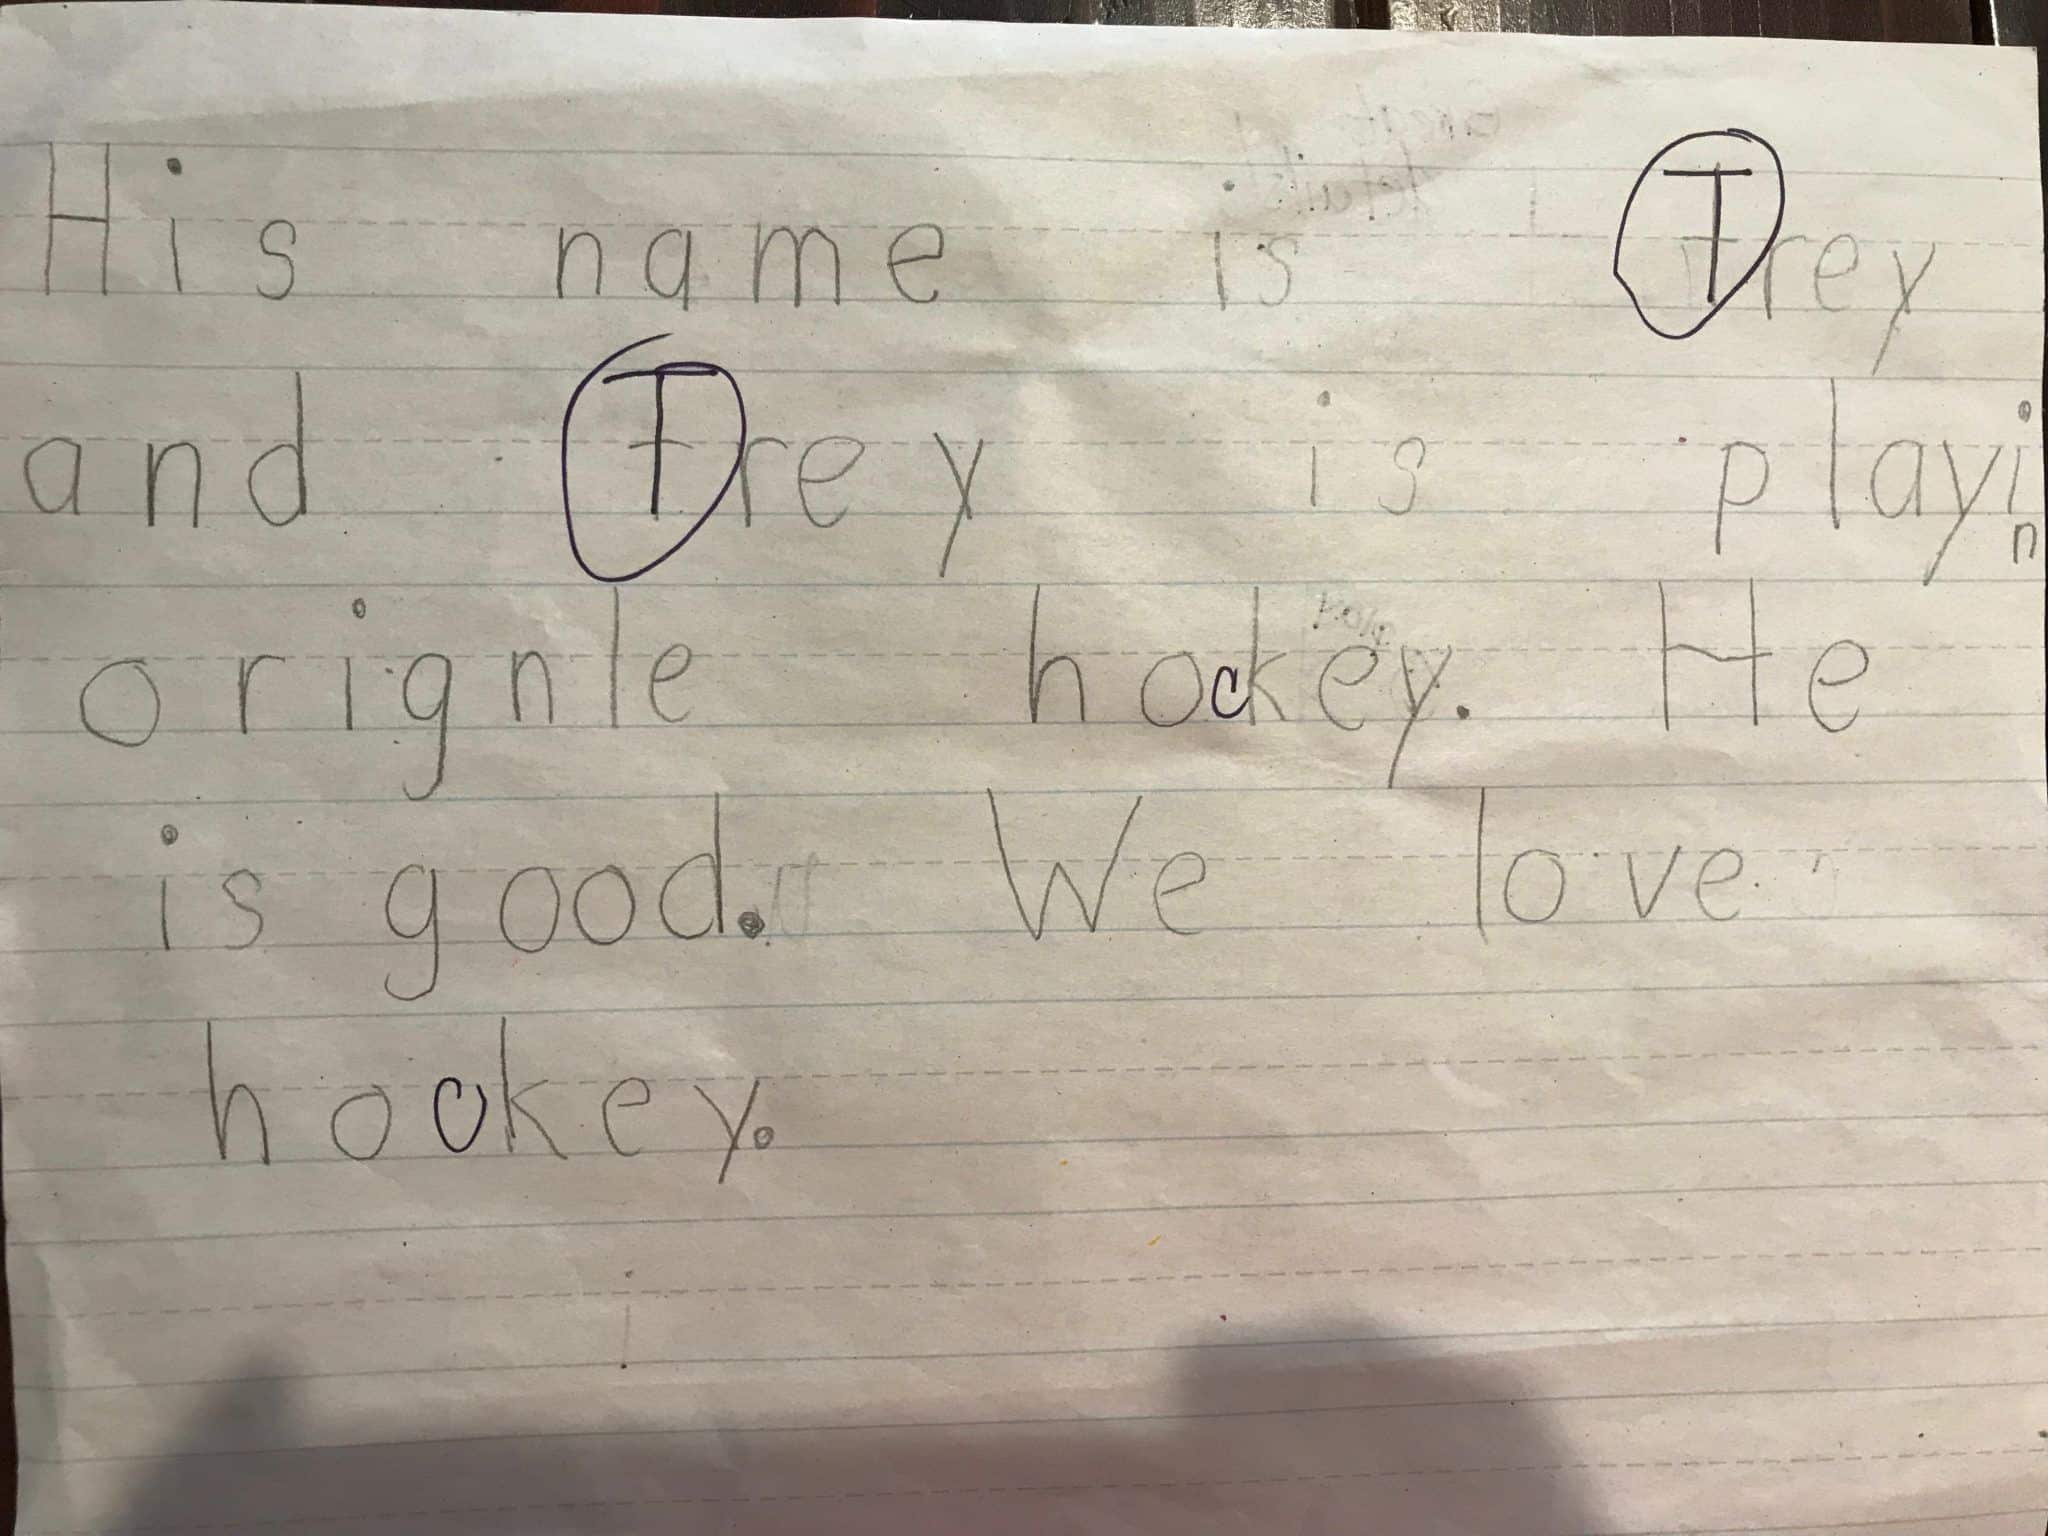 His name is Trey
and Trey is playin
orignle hockey. He
is good. We love
hockey.